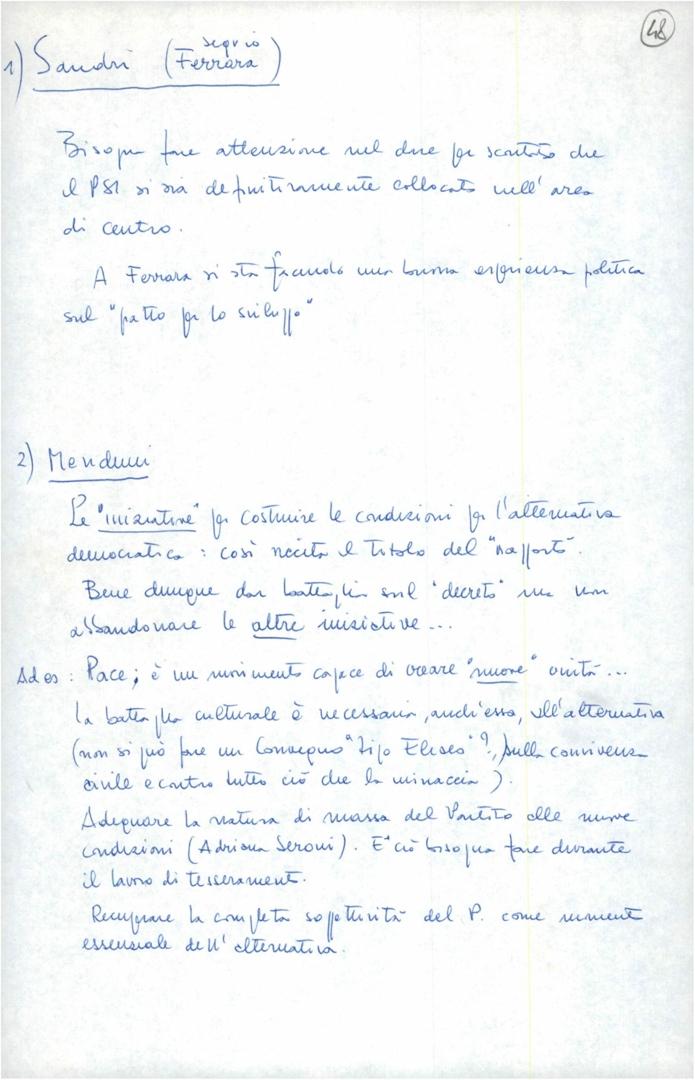 48
1) Sandri (segr.io Ferrara)
Bisogna fare attenzione nel dare per scontato che
il PSI si sia definitivamente collocato nell'area
di centro.
A Ferrara si sta facendo una buona esperienza politica
sul "patto per lo sviluppo"
2) Menduni
Le "iniziative" per costruire le condizioni per l'alternativa
democratica: così recita il titolo del "rapporto".
Bene dunque dar battaglia sul "decreto" ma non
abbandonare le altre iniziative...
Ad es: Pace; è un movimento capace di creare "nuove" unità...
la battaglia culturale è necessaria, anch'essa, all'alternativa
(non si può fare un Convegno "tipo Eliseo"?, sulla convivenza
civile e contro tutto ciò che la minaccia).
Adeguare la natura di massa del Partito alle nuove
condizioni (Adriana Seroni). E ciò bisogna fare durante
il lavoro di tesseramento.
Recuperare la completa soggettività del P. come
essenziale dell'alternativa.